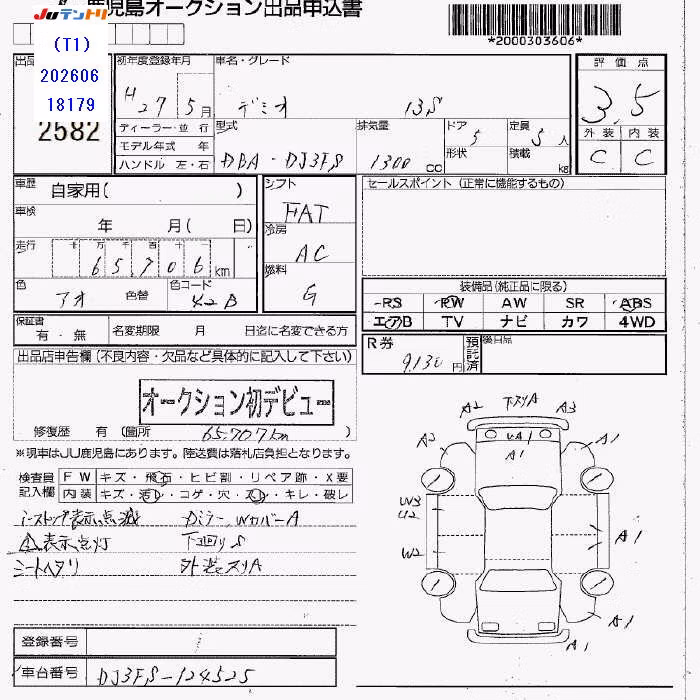 JUテントリ
鹿児島オークション出品申込書
*2000303606*
(T1)
202606
18179
2582
出品
初年度登録年月
H 27 5月
車名・グレード
デミオ 13S
評価点
3.5
外装 内装
C C
ディーラー・並行
モデル年式 年
ハンドル 左・右
型式
DBA-DJ3FS
排気量
1300 cc
ドア 5
形状
定員 5人
積載 kg
車歴 自家用( )
車検 年 月( 日)
走行 十 万 千 百 十
65,706 km
色 アオ 色替
色コード 42B
シフト
FAT
冷房
AC
燃料
G
セールスポイント(正常に機能するもの)
装備品(純正品に限る)
RS PW AW SR ABS
エアB TV ナビ カワ 4WD
保証書 有・無
名変期限 月 日迄に名変できる方
R券 9,130円
預託済
後日品
出品店申告欄(不良内容・欠品など具体的に記入して下さい)
オークション初デビュー
修復歴 有(箇所
65707km )
※現車はJU鹿児島にあります。陸送費は落札店負担となります。
検査員記入欄
FW キズ・飛石・ヒビ割・リペア跡・X要
内装 キズ・汚レ・コゲ・穴・スレ・キレ・破レ
i-ストップ表示点滅 DミラーWカバーA
⚠表示点灯 下廻りS
シートヘタリ 外装スリA
A2 下スリA A3
A2 UA1 A1 A1
W3
U2
W2
A1
A1
A1
登録番号
車台番号 DJ3FS-124525